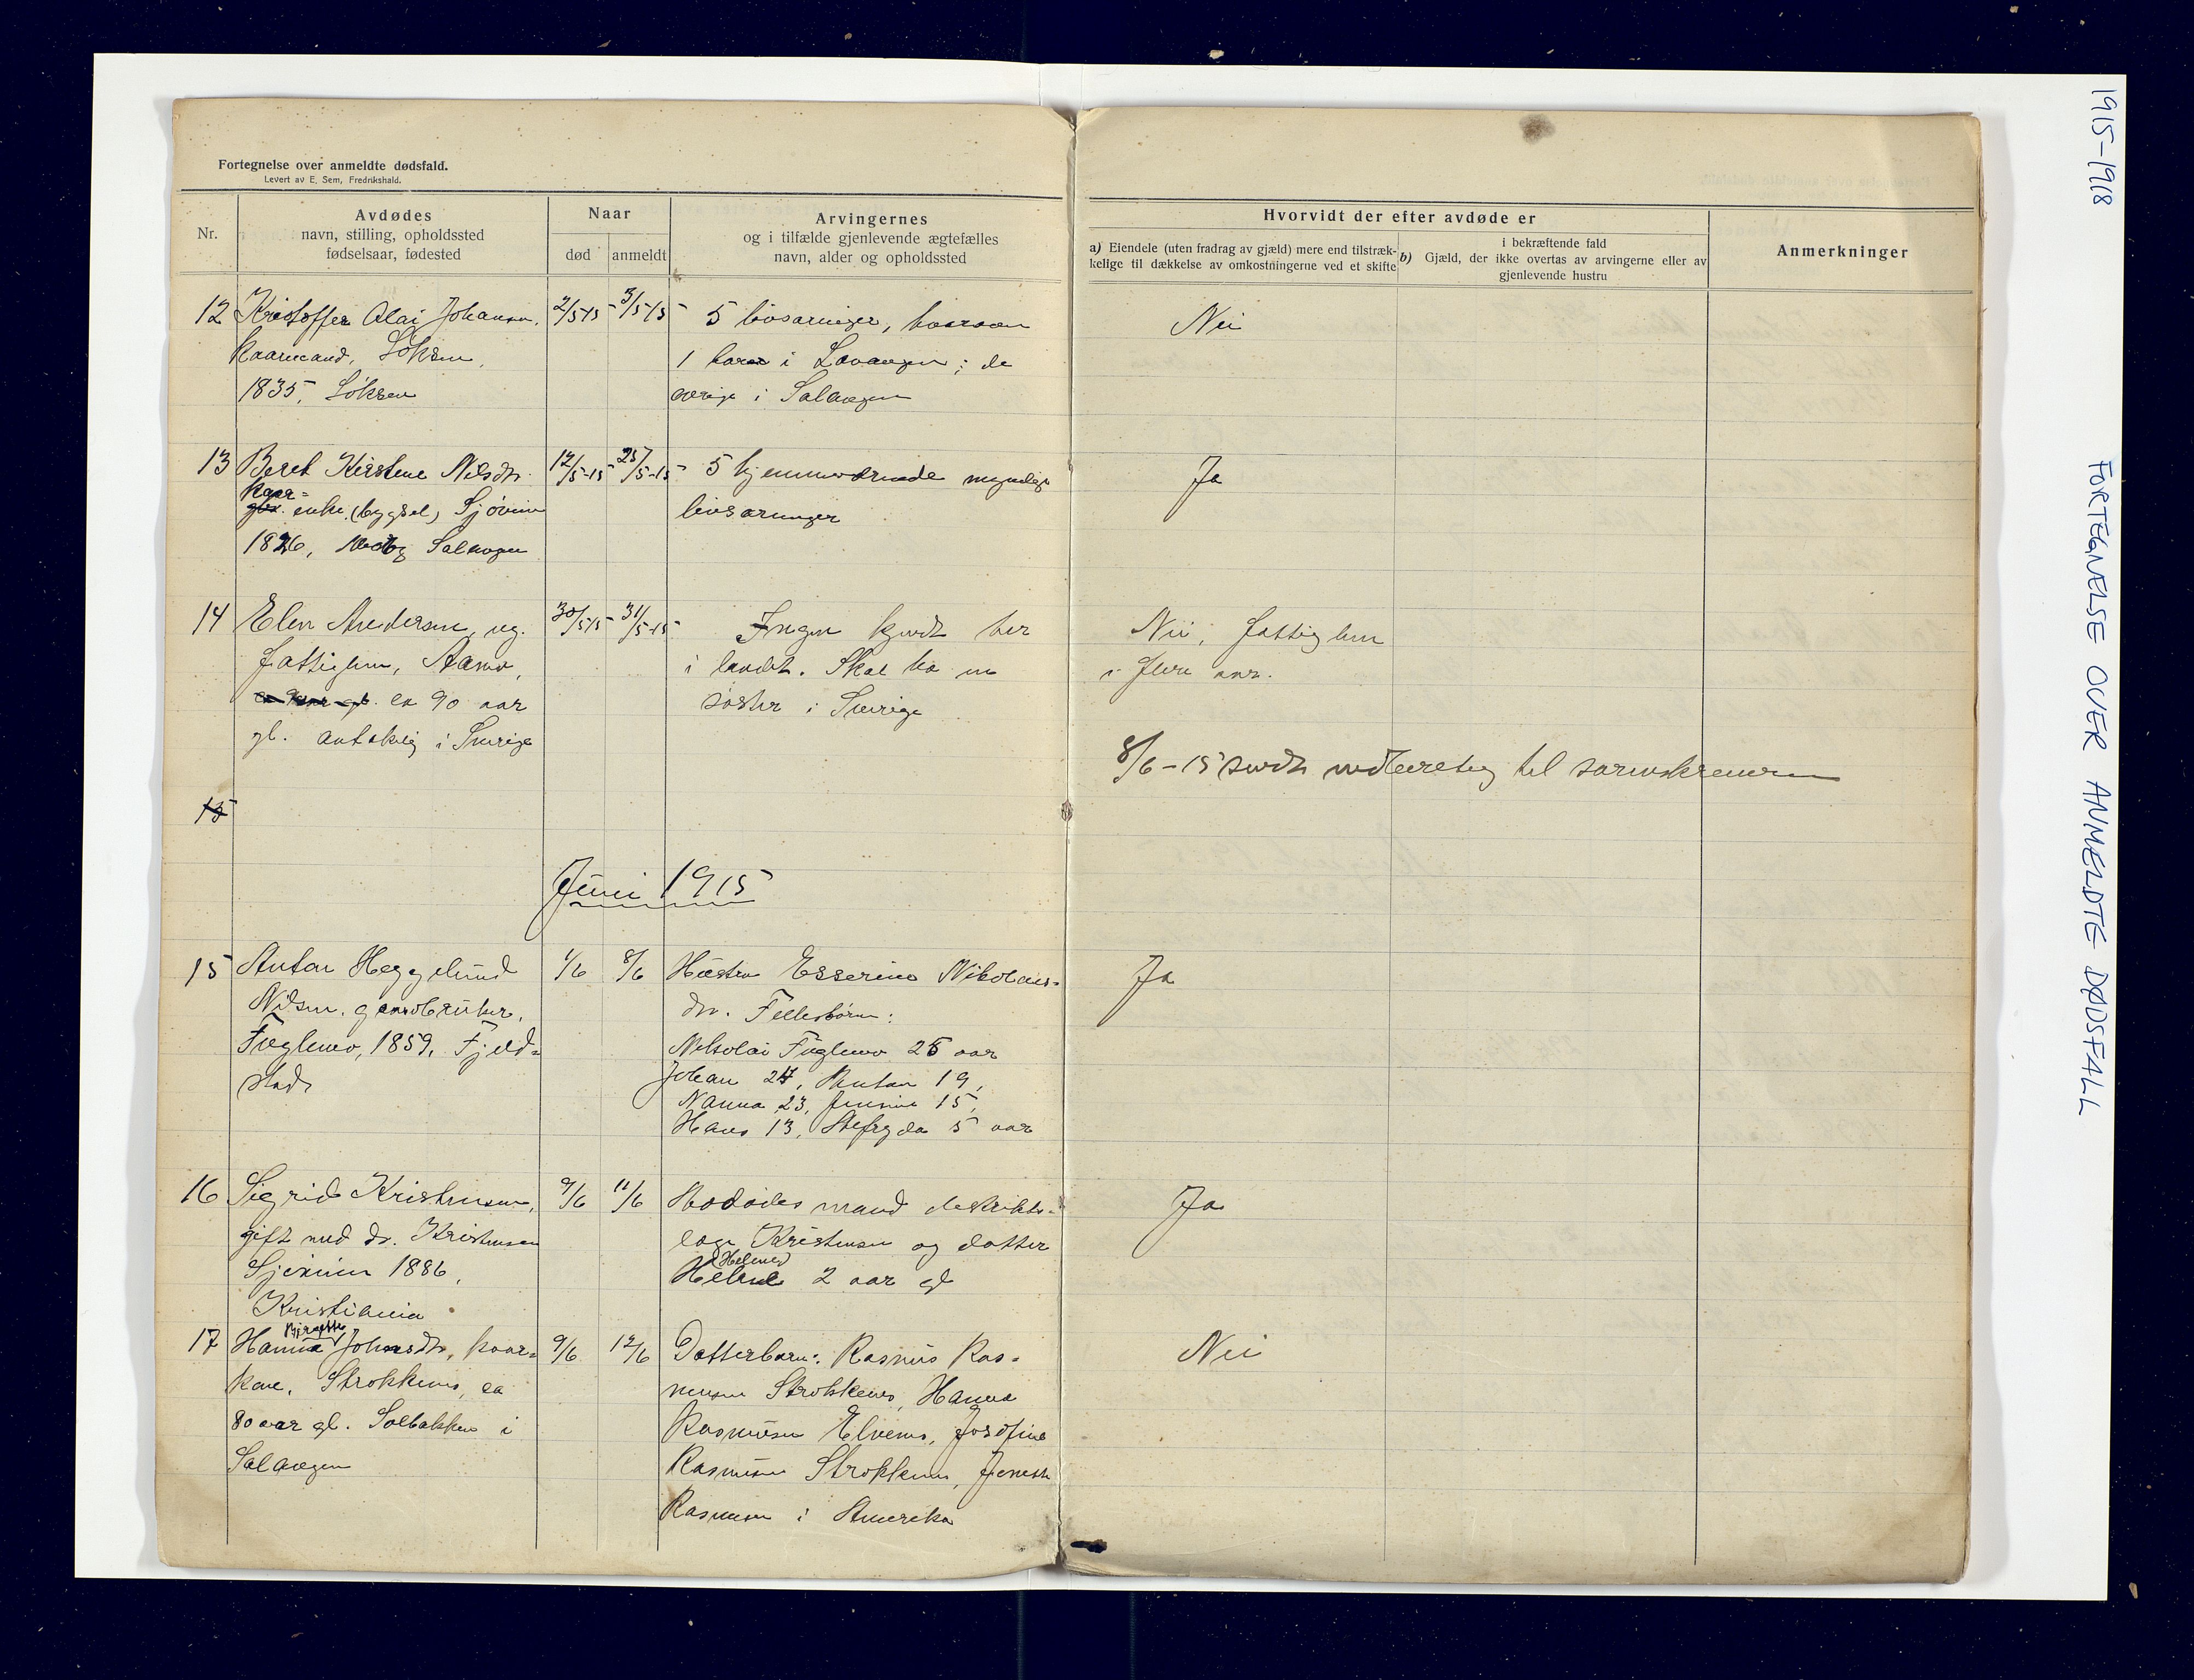 Fortegnelse over anmeldte dødsfald.
Levert av E. Sem, Fredrikshald.
Nr.
Avdødes
navn, stilling, opholdssted
fødselsaar, fødested
Naar
død
anmeldt
Arvingernes
og i tilfælde gjenlevende ægtefælles
navn, alder og opholdssted
Hvorvidt der efter avdøde er
a) Eiendele (uten fradrag av gjæld) mere end tilstræk-
kelige til dækkelse av omkostningerne ved et skifte
i bekræftende fald
b) Gjæld, der ikke overtas av arvingerne eller av
gjenlevende hustru
Anmerkninger
12 Kristoffer Olai Johansen, 2/5-15 3/5-15 5 livsarvinger, hvorav Nei
kaarmand, Løksen,
1 bor i Lavangen; de
1835, Løksen
øvrige i Salangen
13 Beret Kirstine Nilsdtr. 12/5-15 25/5-15 5 hjemmeværende myndige Ja
kaar-
enke (bygsel) Sjøvein
livsarvinger
1826, Salangen
14 Elen Andersen, ug. 30/5-15 31/5-15 Ingen kjendt her Nei, fattiglem
fattiglem, Aamo, i landet. Skal ha en i flere aar.
ca 90 aar søster i Sverige
gl. antakelig i Sverige
8/6-15 sendt indberetng til sorenskriveren
15
Juni 1915
15 Anton Heggelund 1/6 8/6 Hustru Esserine Nikolais- Ja
Nilsen, gaardbruker, dtr. Fellesbørn:
Fuglemo, 1859, Fjeld-
Nikolai Fuglemo 25 aar
stad
Johan 24, Anton 19,
Nanna 23, Jensine 15,
Hans 13, 5 aar
16 Sigrid Kristensen, 9/6 11/6 Avdødes mand distrikts- Ja
gift med dr. Kristensen
læge Kristensen og datter
Sjøvein 1886,
2 aar gl
Kristiania
17 Hanna Johnsdtr, kaar- 9/6 12/6 Datterbarn: Rasmus Ras- Nei
kone, Strokkenes, ca
musen Strokkenes, Hanna
80 aar gl. Solbakken i
Rasmusen Elvenes, Josefine
Salangen
Rasmusen Strokkenes,
Rasmusen i Amerika
1915-1918
FORTEGNELSE OVER ANMELDTE DØDSFALL